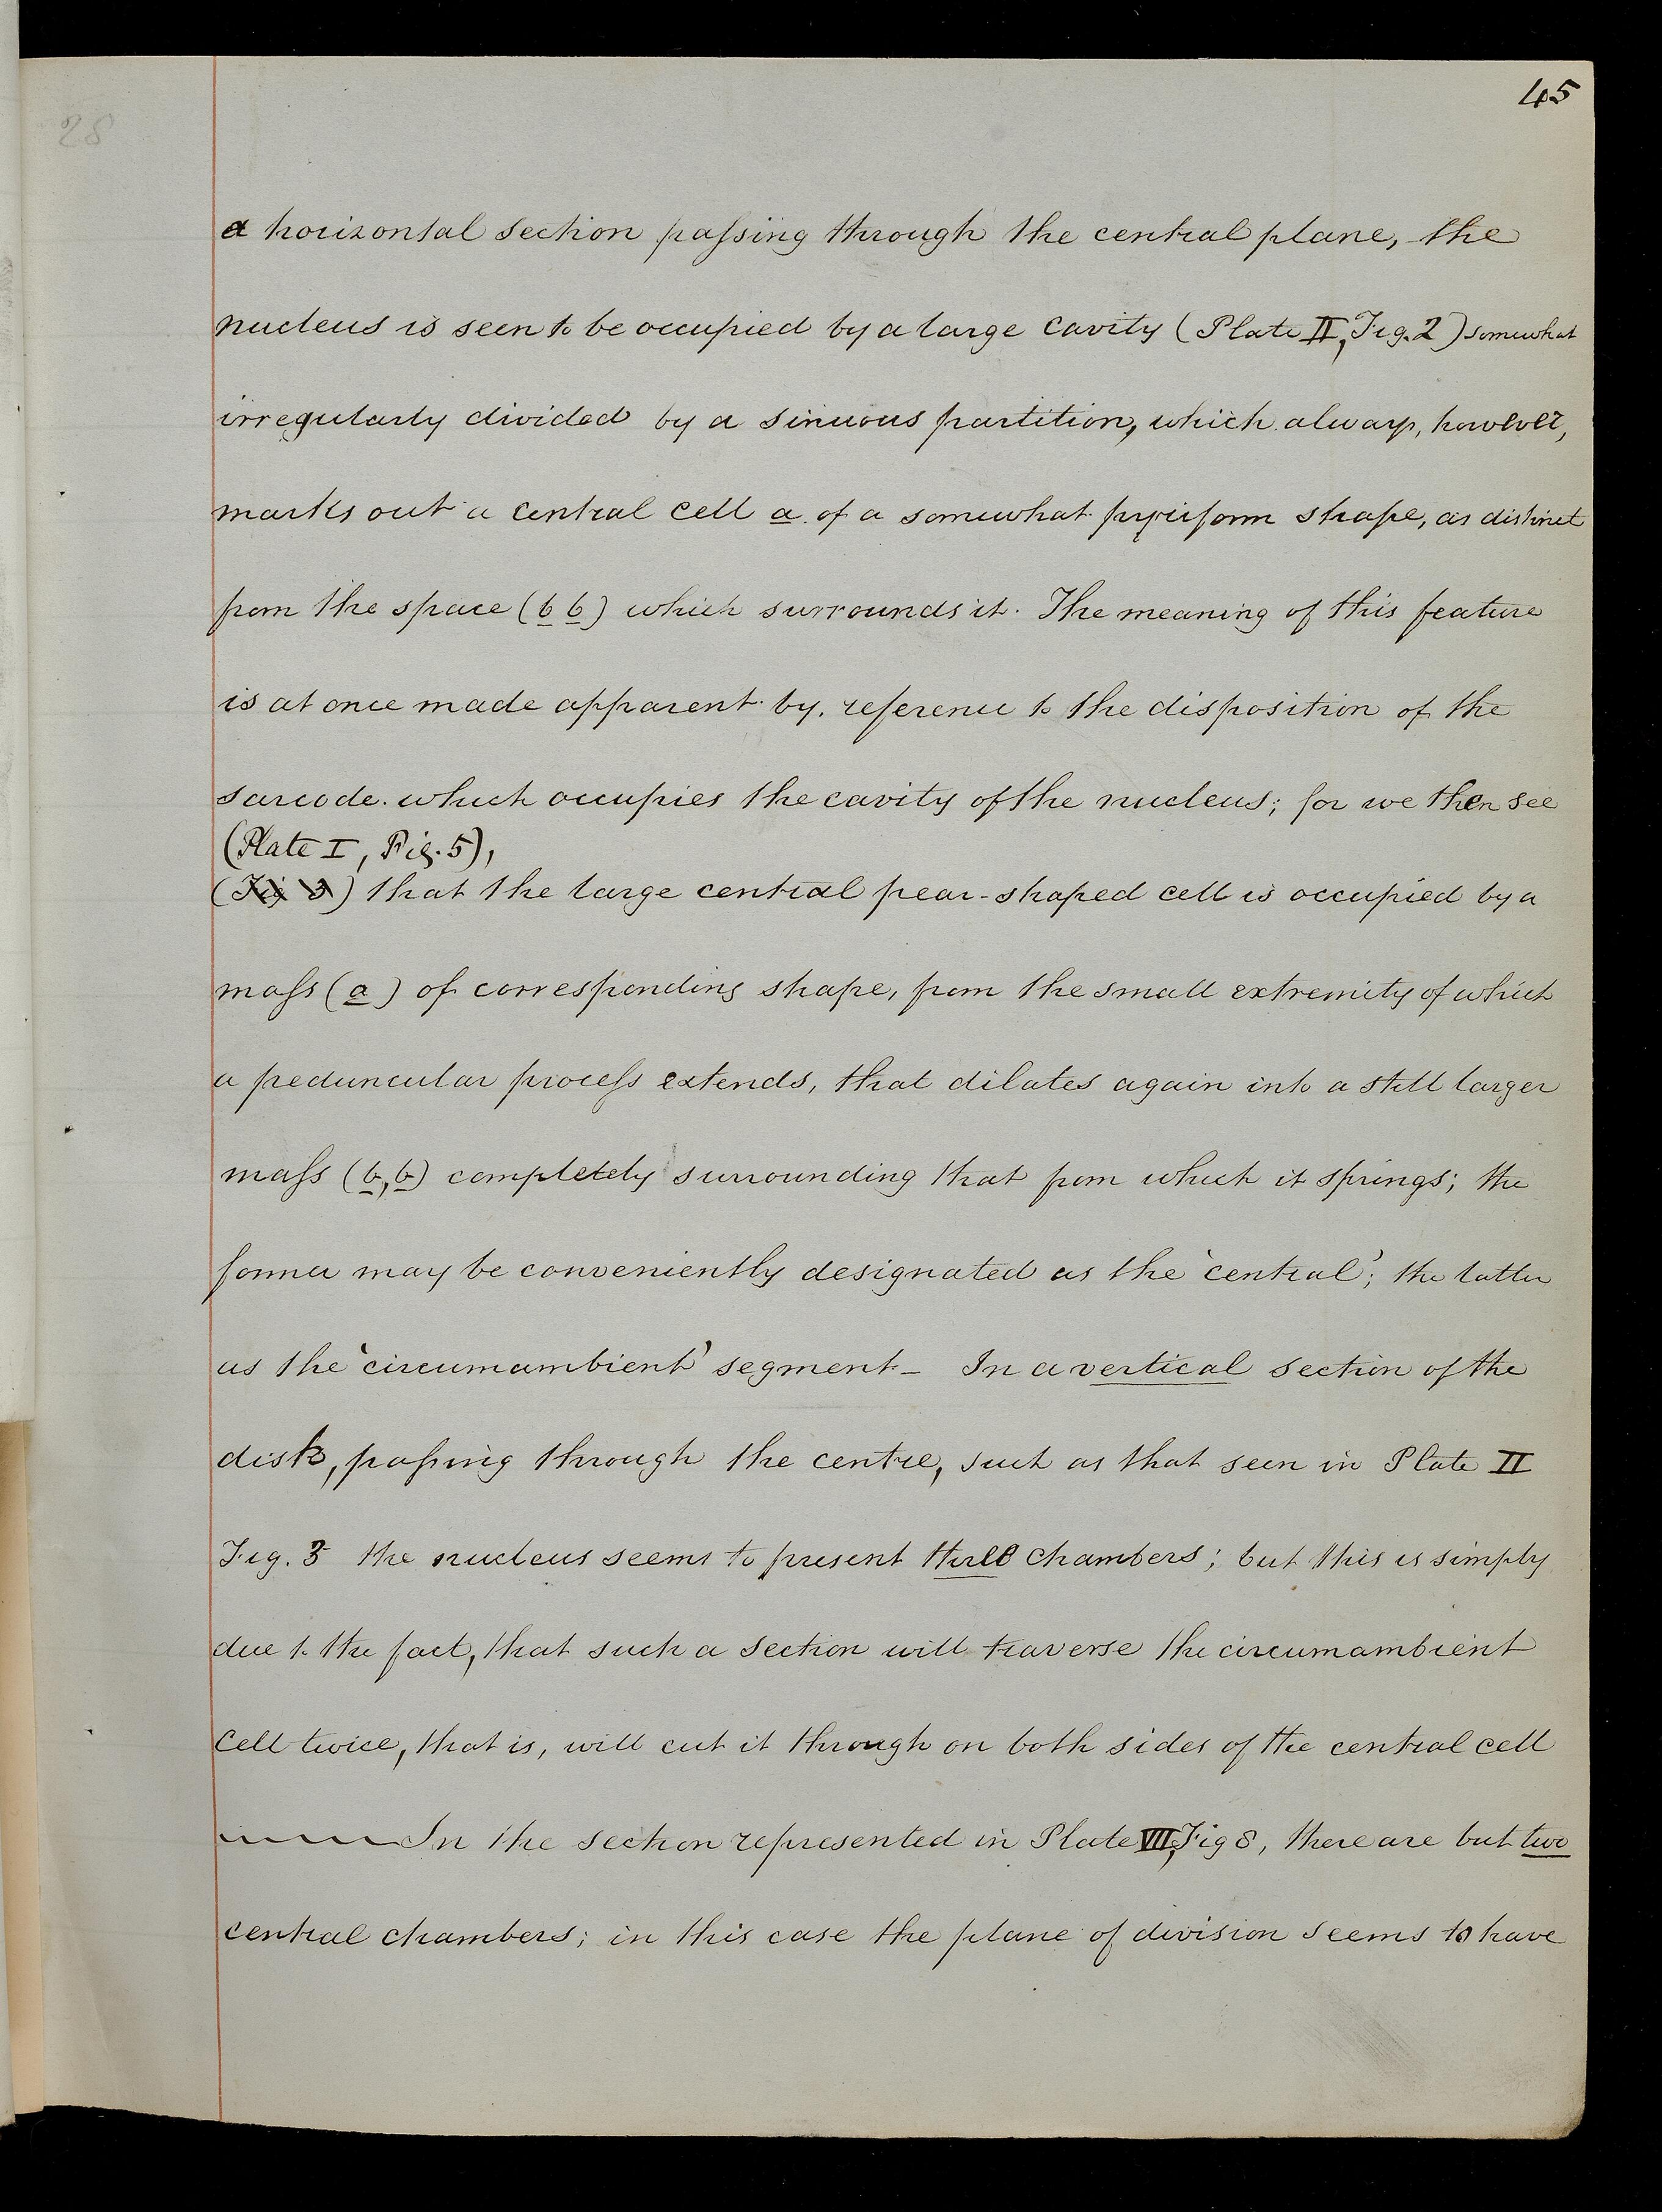 45
28
a horizontal section passing through the central plane, the
nucleus is seen to be occupied by a large cavity (Plate II, Fig. 2) somewhat
irregularly divided by a sinuous partition, which always, however,
marks out a central cell a of a somewhat pyriform shape, as distinct
from the space (b b) which surrounds it. The meaning of this feature
is at once made apparent by reference to the disposition of the
sarcode which occupies the cavity of the nucleus; for we then see
(Plate I, Fig. 5),
(Fig 3) that the large central pear-shaped cell is occupied by a
mass (a) of corresponding shape, from the small extremity of which
a peduncular process extends, that dilates again into a still larger
mass (b, b) completely surrounding that from which it springs; the
former may be conveniently designated as the 'central'; the latter
as the 'circumambient' segment– In a vertical section of the
disk, passing through the centre, such as that seen in Plate II
Fig. 3 the nucleus seems to present three chambers; but this is simply
due to the fact, that such a section will traverse the circumambient
Cell twice, that is, will cut it through on both sides of the central cell
In the section represented in Plate VII, Fig 8, there are but two
central chambers; in this case the plane of division seems to have